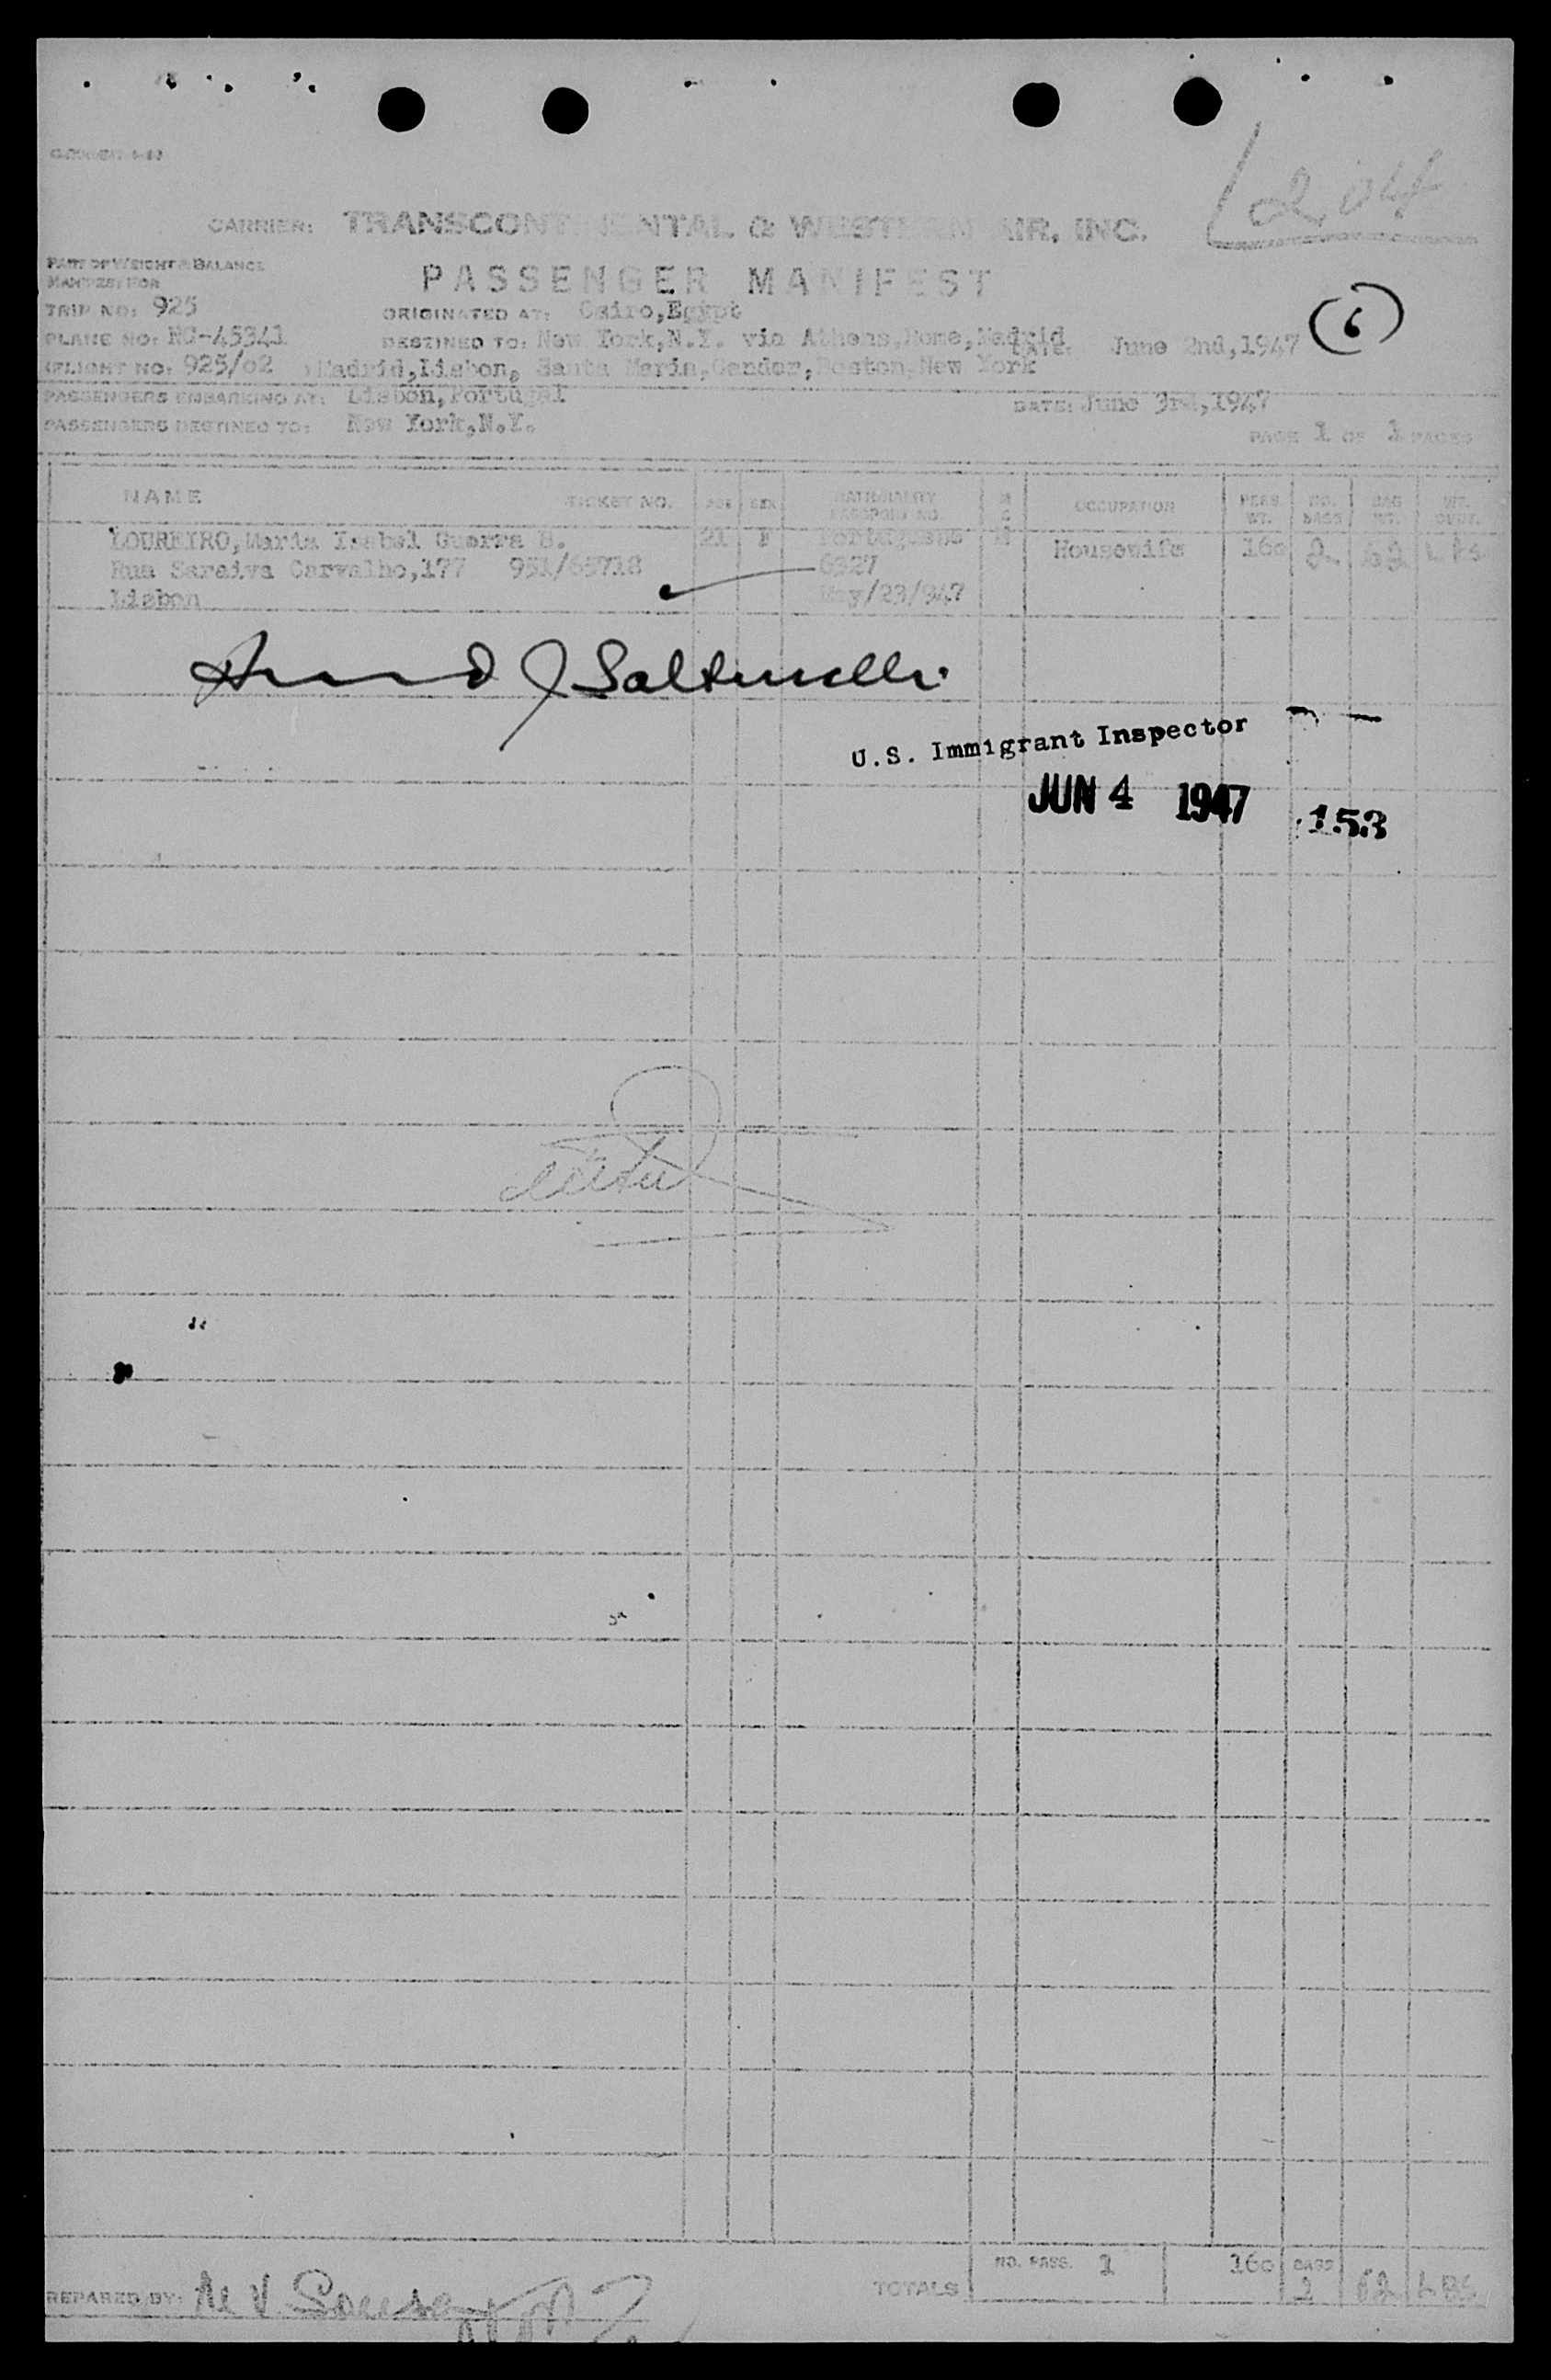 CARRIER: TRANSCONTINENTAL & WESTERN AIR, INC.
PART OF WEIGHT & BALANCE
MANIFEST FOR
PASSENGER MANIFEST
TRIP NO: 925 ORIGINATED AT: Cairo,Egypt
6
PLANE NO: NC-45341 DESTINED TO: New York,N.Y. via Athens,Rome,Madrid DATE: June 2nd,1947
FLIGHT NO: 925/02 Madrid,Lisbon, Santa Maria,Gander,Boston,New York
PASSENGERS EMBARKING AT: Lisbon,Portugal DATE: June 3rd,1947
PASSENGERS DESTINED TO: New York,N.Y. PAGE 1 OF 1 PAGES
NAME TICKET NO. AGE SEX NATIONALITY PASSPORT NO. OCCUPATION PERS. WT. NO. BAGS BAG WT.
LOUREIRO,Maria Isabel Guerra 21 F Portuguese M Housewife 160 2 62 LBS
Rua Saraiva Carvalho,177 951/65718 6327
Lisbon May/23/947
J Saltinelli
U.S. Immigrant Inspector
JUN 4 1947 153
TOTALS NO. PASS. 1 160 BAGS 2 62 LBS
PREPARED BY: M V Sousa